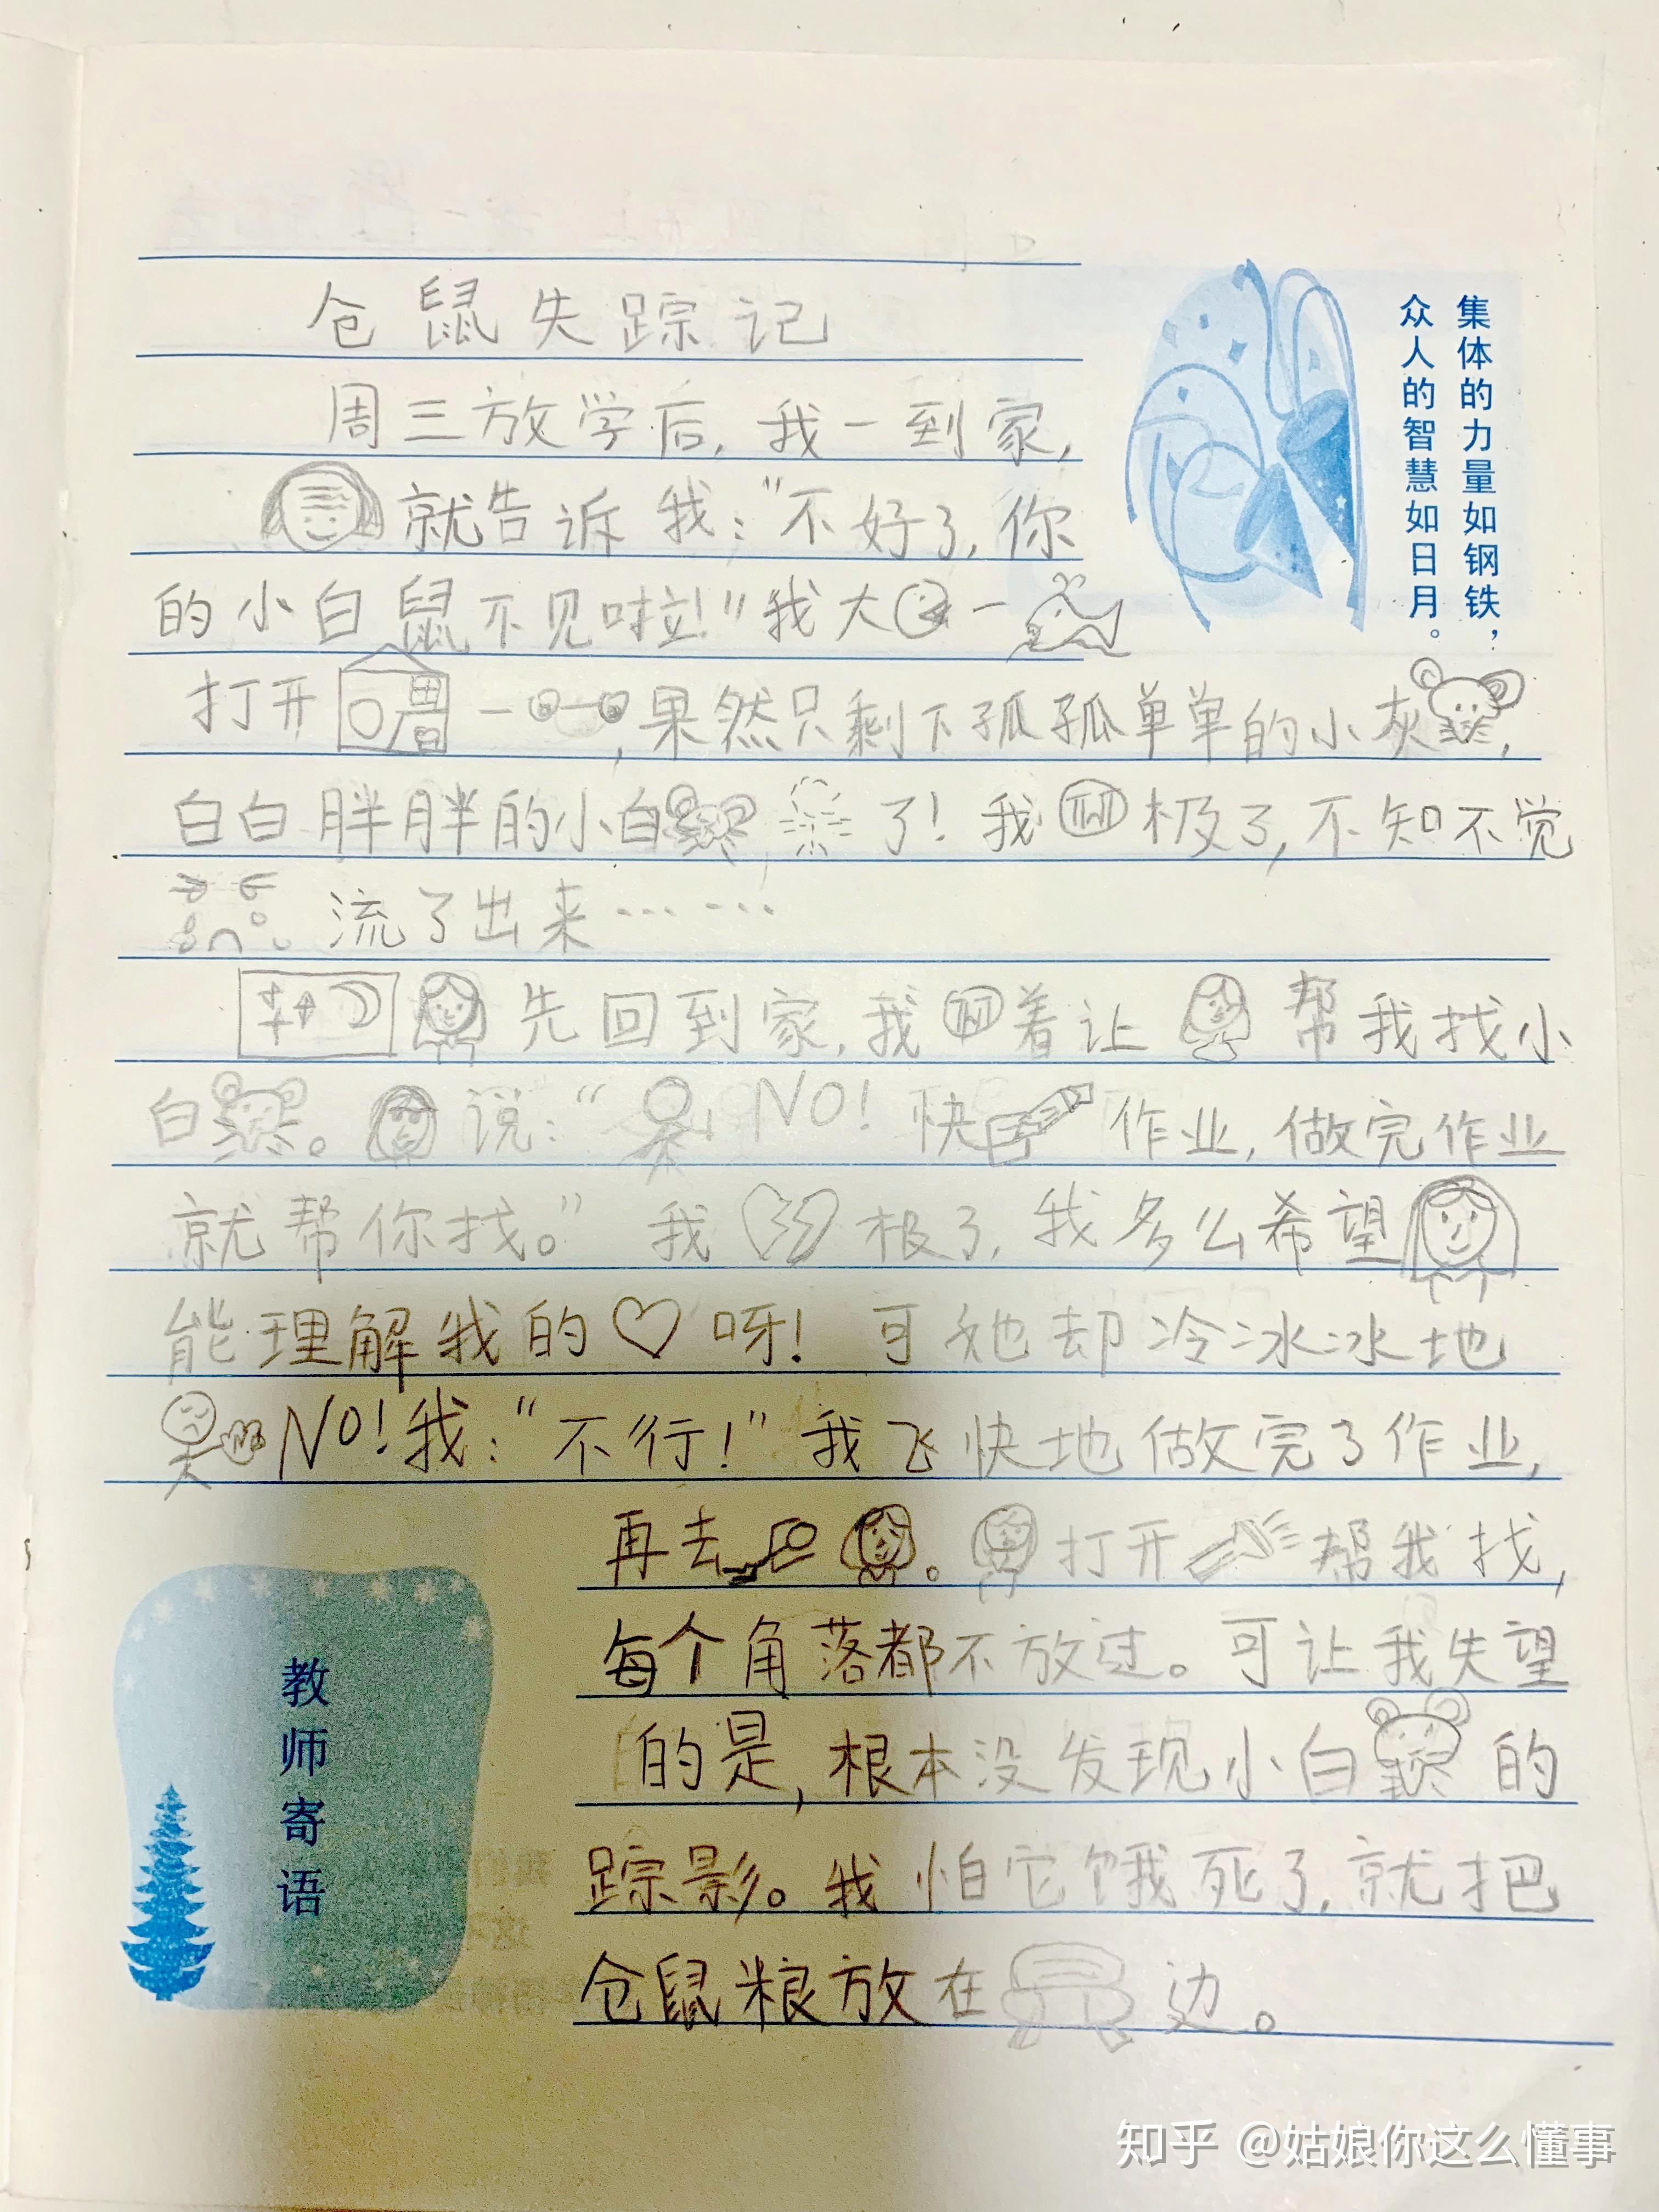 仓鼠失踪记
周三放学后,我一到家,
就告诉我:“不好了,你
的小白鼠不见啦!”我大一
打开一,果然只剩下孤孤单单的小灰,
白白胖胖的小白了!我极了,不知不觉
流了出来……
先回到家,我着让帮我找小
白。说:“NO!快作业,做完作业
就帮你找。”我极了,我多么希望
能理解我的呀!可她却冷冰冰地
NO!我:“不行!”我飞快地做完了作业,
再去。打开帮我找,
每个角落都不放过。可让我失望
的是,根本没发现小白的
踪影。我怕它饿死了,就把
仓鼠粮放在边。
集体的力量如钢铁,
众人的智慧如日月。
教师寄语
知乎 @姑娘你这么懂事